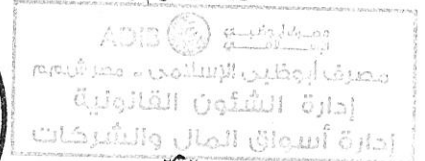 ADIB مصرف أبوظبي الإسلامي
مصرف أبوظبي الإسلامي - مصر ش.م.م
إدارة الشئون القانونية
إدارة أسواق المال والشركات